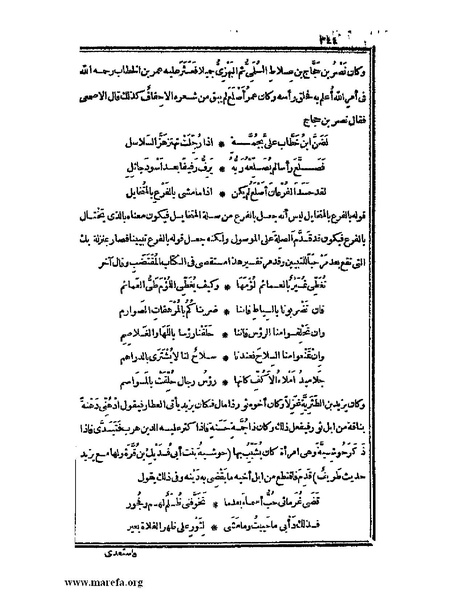 ٣٤٤
وكان نصر بن حجاج بن علاط السلمي ثم البهزي جميلا فعثر عليه عمر بن الخطاب رحمه الله
في أمر الله أعلم به فحلق رأسه وكان عمر أصلع لم يبق من شعره الا حفاف كذلك قال الاصمعي
فقال نصر بن حجاج
لضن ابن خطاب علي بجمة * اذا رجلت تهتز هز السلاسل
فصلع رأسا لم يصلعه ربه * يرف رفيفا بعد أسود جائل
لقد حسد الفرعان أصلع لم يكن * اذا ما مشى بالفرع بالمتخايل
قوله بالفرع بالمتخايل ليس أنه جعل بالفرع من صلة المتخايل فيكون معناه بالذي يختال
بالفرع فيكون قد قدم الصلة على الموصول ولكنه جعل قوله بالفرع تبيينا فصار بمنزلة بك
التي تقع بعد مرحبا للتبيين وقد مر تفسير هذا مستقصى في الكتاب المقتضب وقال آخر
تغطي نمير بالعمائم لؤمها * وكيف يغطي اللؤم طي العمائم
فان تضربونا بالسياط فاننا * ضربناكم بالمرهفات الصوارم
وان تحلقوا منا الرؤس فاننا * حلقنا رؤسا باللها والغلاصم
وان تمنعوا منا السلاح فعندنا * سلاح لنا لا يشترى بالدراهم
جلاميد أملاء الأكف كأنها * رؤس رجال حلقت بالمواسم
وكان يزيد بن الطثرية غزلا وكان أخوه ثور ذا مال فكان يزيد يأتي العطار فيقول ادهني دهنة
بناقة من ابل ثور فيفعل ذلك وكان ذا جمة حسنة فاذا كثر عليه الدين هرب فاذا
ذكر حوشية وهي امرأة كان يشبب بها (حوشية بنت أبي فديك بن قرة ولها مع يزيد
حديث طريف) قدم فاقتطع من ابل أخيه ما يقضي به دينه وفي ذلك يقول
قضى غرمائي حب أسماء بعدما * تخوفني ظلم لهم وفجور
فذلك دأبي ما حييت وما مشى * لثور على ظهر الفلاة بعير
واستعدى
www.marefa.org